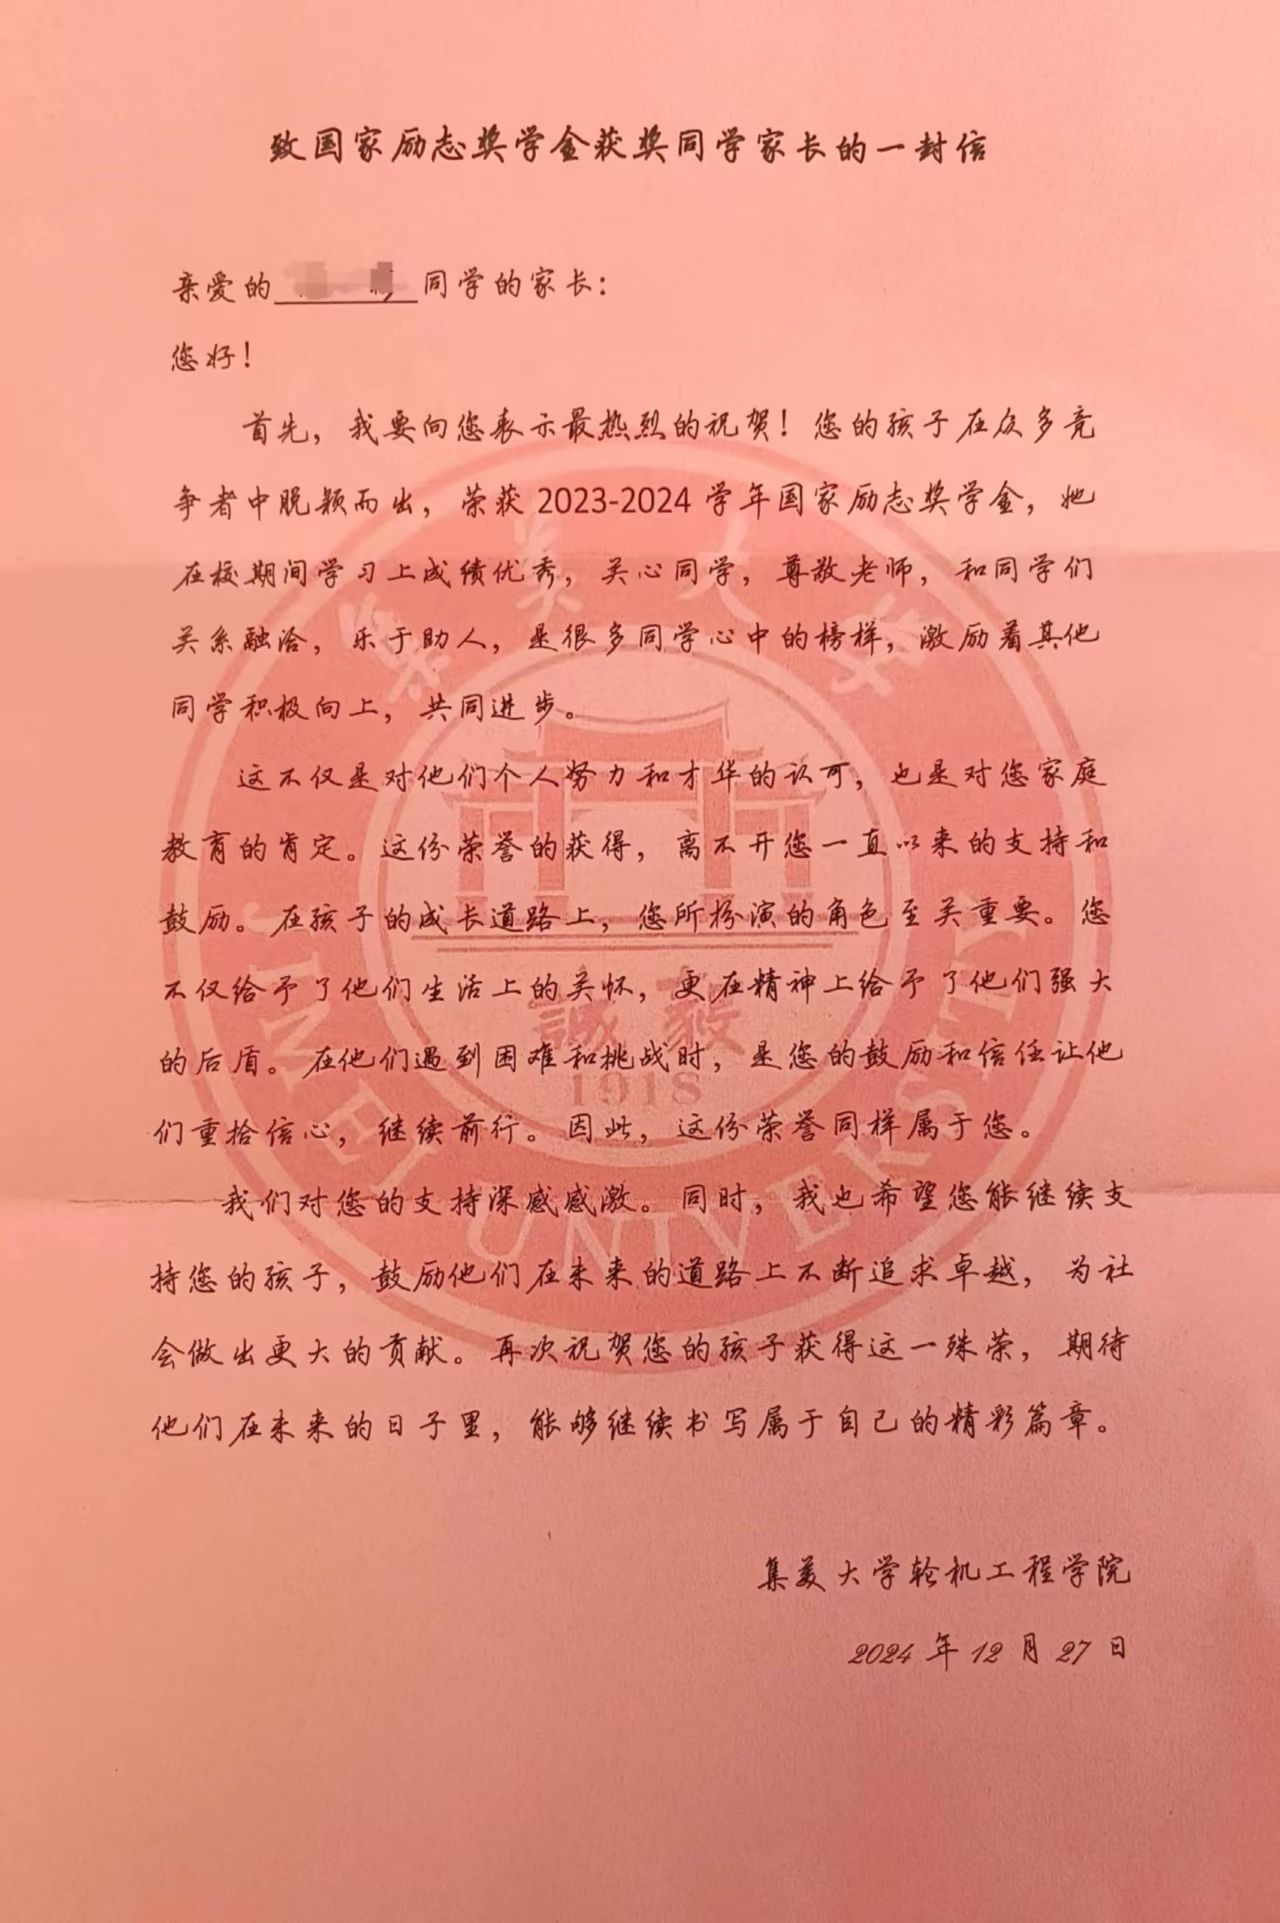 致国家励志奖学金获奖同学家长的一封信
亲爱的 同学的家长：
您好！
首先，我要向您表示最热烈的祝贺！您的孩子在众多竞
争者中脱颖而出，荣获 2023-2024 学年国家励志奖学金，她
在校期间学习上成绩优秀，关心同学，尊敬老师，和同学们
关系融洽，乐于助人，是很多同学心中的榜样，激励着其他
同学积极向上，共同进步。
这不仅是对他们个人努力和才华的认可，也是对您家庭
教育的肯定。这份荣誉的获得，离不开您一直以来的支持和
鼓励。在孩子的成长道路上，您所扮演的角色至关重要。您
不仅给予了他们生活上的关怀，更在精神上给予了他们强大
的后盾。在他们遇到困难和挑战时，是您的鼓励和信任让他
们重拾信心，继续前行。因此，这份荣誉同样属于您。
我们对您的支持深感感激。同时，我也希望您能继续支
持您的孩子，鼓励他们在未来的道路上不断追求卓越，为社
会做出更大的贡献。再次祝贺您的孩子获得这一殊荣，期待
他们在未来的日子里，能够继续书写属于自己的精彩篇章。
集美大学轮机工程学院
2024 年 12 月 27 日
集美大学
誠毅
1918
JIMEI UNIVERSITY